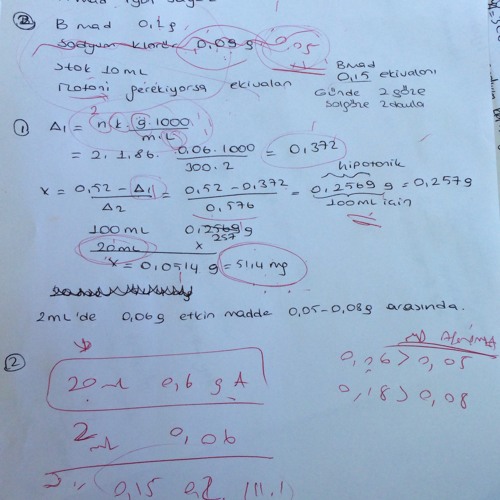 ② B mad 0,1g
Sodyum klorür 0,09g 0,05
Stok 10 mL
izotoni gerekiyorsa ekivalan
B mad
0,15 ekivalanı
Günde 2 göze
Sağ göze 2 damla
① Δ1 = n.k.g.1000 / m.L
2
= 2. 1.86. 0.06.1000 / 300.2 = 0,372
hipotonik
x = 0,52 - Δ1 / Δ2 = 0,52 - 0,372 / 0,576 = 0,2569 g = 0,257g
100 mL için
100 mL 0,2569 g
257
20 mL x
x = 0,0514 g = 51,4 mg
2mL'de 0,06g etkin madde 0,05-0,08g arasında.
0,06 > 0,05
0,18 > 0,08
② 20 mL 0,6 g A
2 mL 0,06
0,15